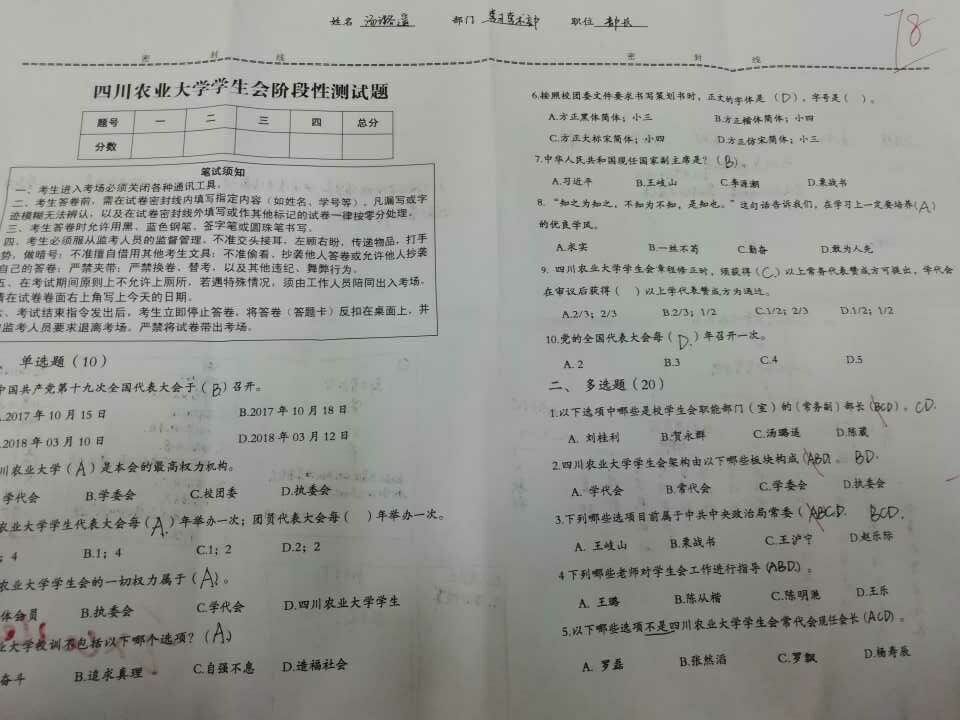 姓名 汤璐遥 部门 青志艺术部 职位 部长
78
密 封 线 密 封 线
四川农业大学学生会阶段性测试题
题号 一 二 三 四 总分
分数
笔试须知
一、考生进入考场必须关闭各种通讯工具。
二、考生答卷前，需在试卷密封线内填写指定内容（如姓名、学号等），凡漏写或字
迹模糊无法辨认，以及在试卷密封线外填写或作其他标记的试卷一律按零分处理。
三、考生答卷时允许用黑、蓝色钢笔、签字笔或圆珠笔书写。
四、考生必须服从监考人员的监督管理，不准交头接耳，左顾右盼，传递物品，打手
势，做暗号；不准擅自借用其他考生文具；不准偷看、抄袭他人答卷或允许他人抄袭
自己的答卷；严禁夹带；严禁换卷、替考，以及其他违纪、舞弊行为。
五、在考试期间原则上不允许上厕所，若遇特殊情况，须由工作人员陪同出入考场，
请在试卷卷面右上角写上今天的日期。
六、考试结束指令发出后，考生立即停止答卷，将答卷（答题卡）反扣在桌面上，并
监考人员要求退离考场。严禁将试卷带出考场。
、 单选题（10）
中国共产党第十九次全国代表大会于（B）召开。
.2017 年 10 月 15 日 B.2017 年 10 月 18 日
.2018 年 03 月 10 日 D.2018 年 03 月 12 日
川农业大学（A）是本会的最高权力机构。
学代会 B.学委会 C.校团委 D.执委会
农业大学学生代表大会每（A.）年举办一次；团员代表大会每（ ）年举办一次。
；4 B.1；4 C.1；2 D.2；2
农业大学学生会的一切权力属于（A）。
体会员 B.执委会 C.学代会 D.四川农业大学学生
业大学校训不包括以下哪个选项？（A）
奋斗 B.追求真理 C.自强不息 D.造福社会
6.按照校团委文件要求书写策划书时，正文的字体是（D），字号是（ ）。
A.方正黑体简体；小三 B.方正楷体简体；小四
C.方正大标宋简体；小四 D.方正仿宋简体；小三
7.中华人民共和国现任国家副主席是？（B）。
A.习近平 B.王岐山 C.李源潮 D.栗战书
8.“知之为知之，不知为不知，是知也。”这句话告诉我们，在学习上一定要培养（A）
的优良学风。
A.求实 B.一丝不苟 C.勤奋 D.敢为人先
9. 四川农业大学学生会章程修正时，须获得（C）以上常务代表赞成方可提出，学代会
在审议后获得（ ）以上学代表赞成方为通过。
A.2/3；2/3 B.2/3；1/2 C.1/2；2/3 D.1/2；1/2
10.党的全国代表大会每（D.）年召开一次。
A. 2 B.3 C.4 D.5
二、 多选题（20）
1.以下选项中哪些是校学生会职能部门（室）的（常务副）部长（BCD）。CD.
A. 刘桂利 B.贺永群 C.汤璐遥 D.陈葳
2.四川农业大学学生会架构由以下哪些板块构成（ABD）。 BD.
A. 学代会 B.常代会 C.学委会 D.执委会
3.下列哪些选项目前属于中共中央政治局常委（ABCD. BCD.
A. 王岐山 B.栗战书 C.王沪宁 D.赵乐际
4 下列哪些老师对学生会工作进行指导（ABD.）。
A. 王璐 B.陈从楷 C.陈明滟 D.王乐
5.以下哪些选项不是四川农业大学学生会常代会现任会长（ACD）。
A. 罗磊 B.张然滔 C.罗飘 D.杨寿辰